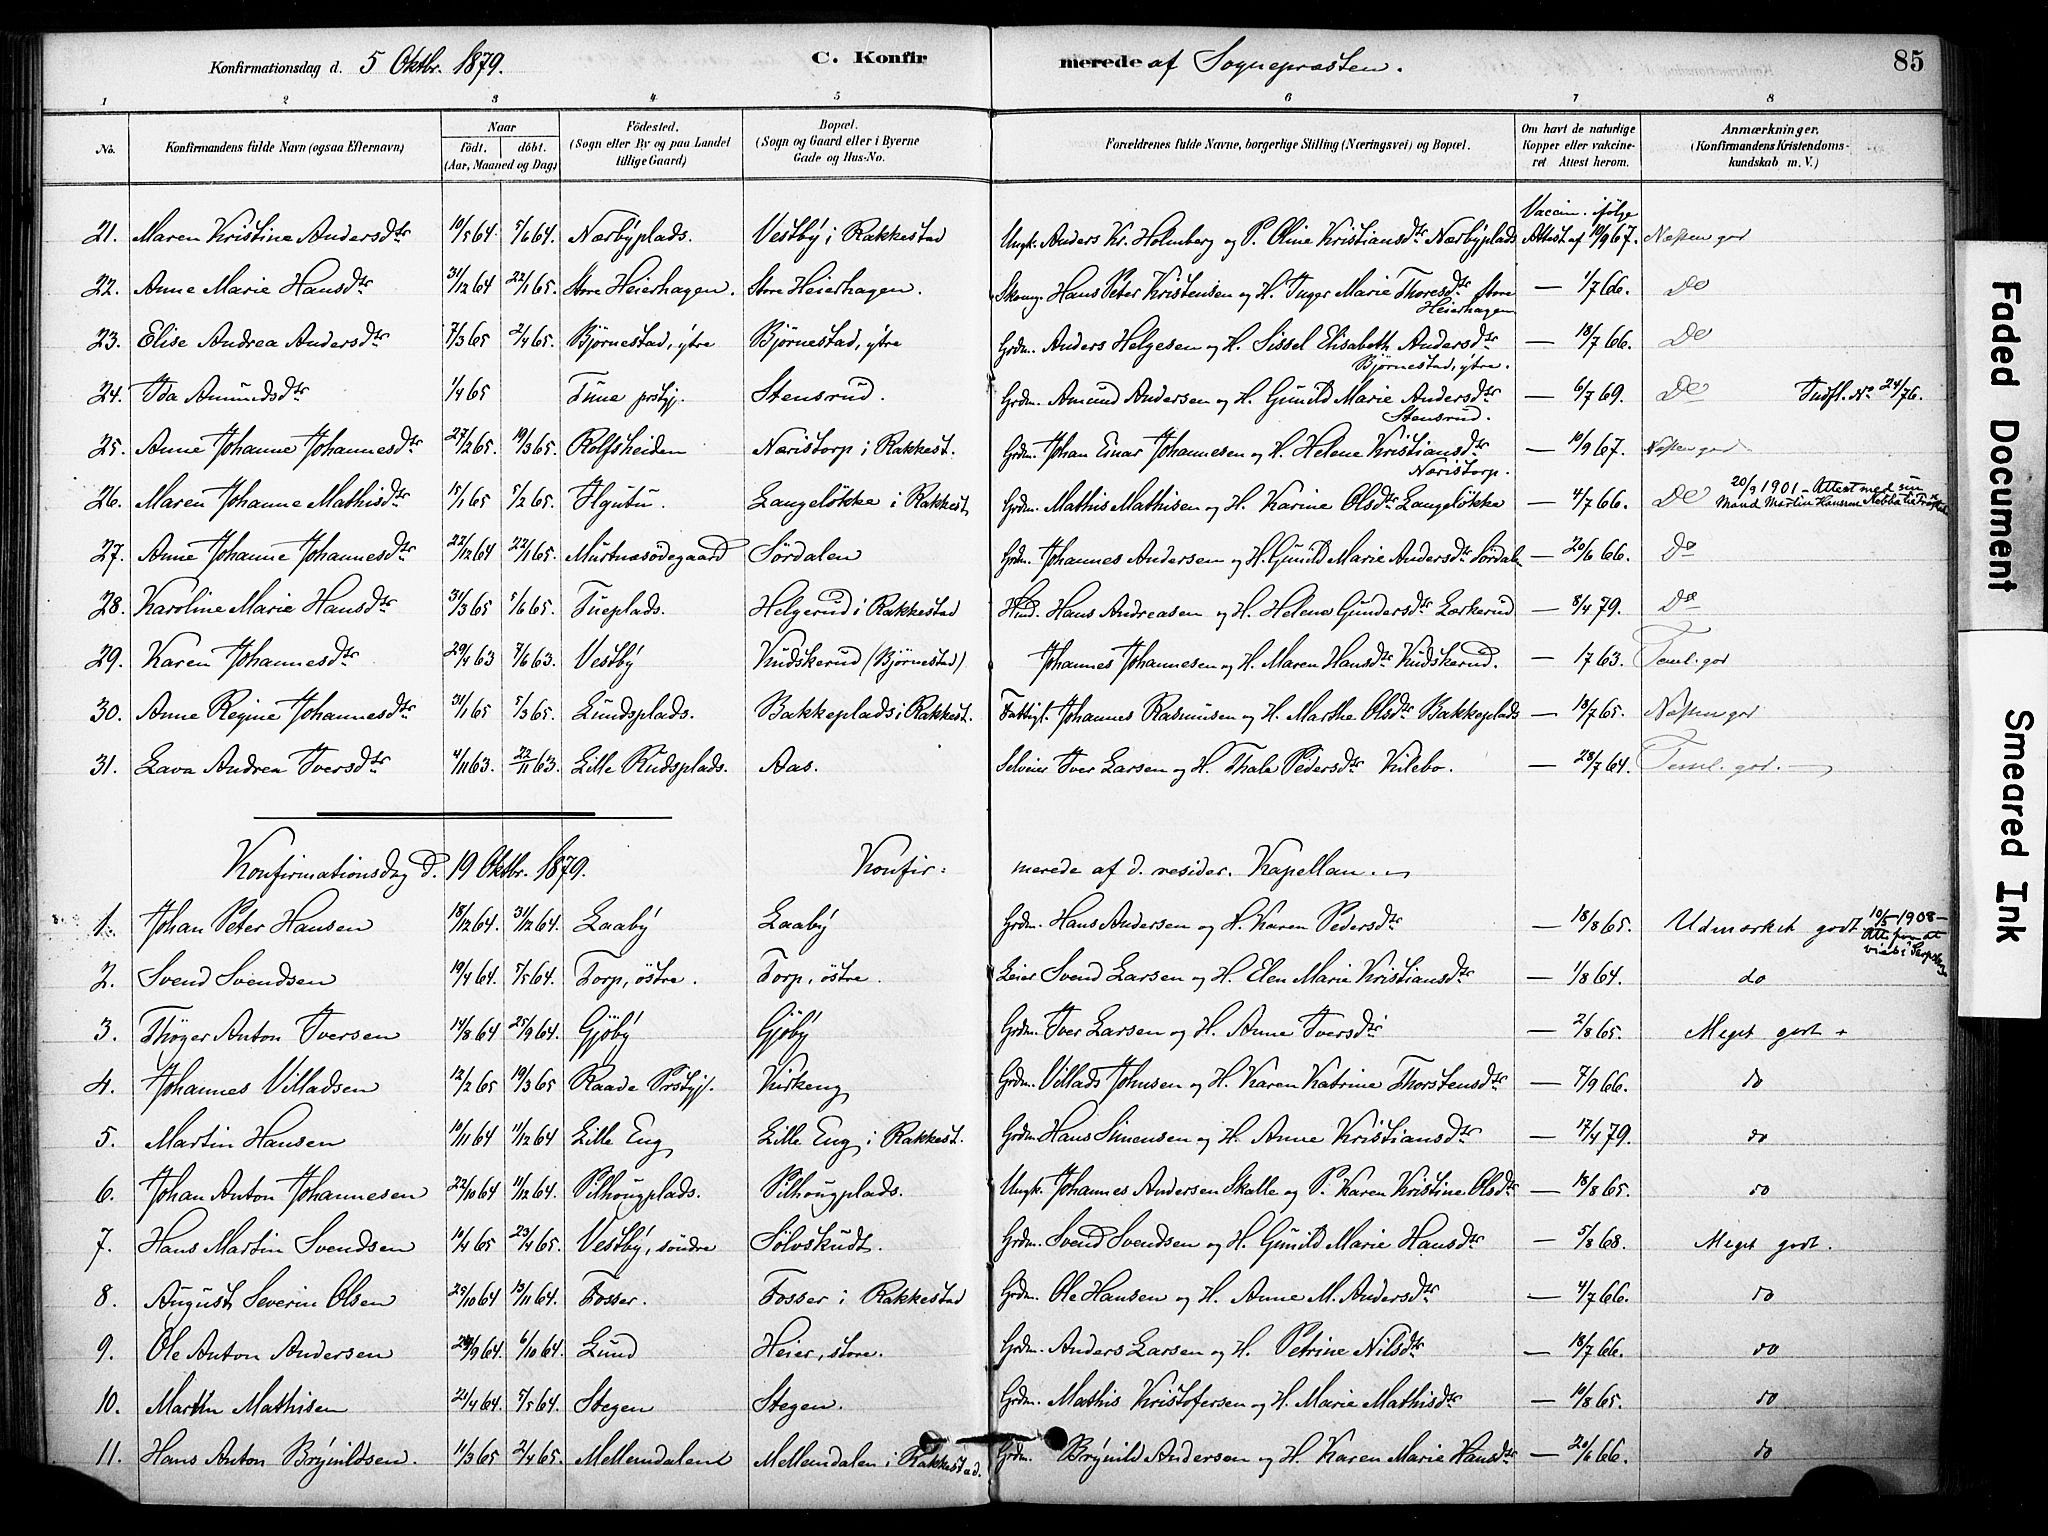 Konfirmationsdag d. 5 Oktbr. 1879. C. Konfirmerede af Sognepræsten. 85
1 2 3 4 5 6 7 8
No. Konfirmandens fulde Navn (ogsaa Efternavn) Naar födt. döbt. (Aar, Maaned og Dag) Födested. (Sogn eller By og paa Landet tillige Gaard) Bopæl. (Sogn og Gaard eller i Byerne Gade og Hus-No. Forældrenes fulde Navne, borgerlige Stilling (Næringsvei) og Bopæl. Om havt de naturlige Kopper eller vakcineret Attest herom. Anmærkninger, (Konfirmandens Kristendomskundskab m. V.)
21. Maren Kristine Andersdtr 10/5 64 5/6 64. Nærbyplads. Vestby i Rakkestad Ungk. Anders Kr. Holmberg og P. Oline Kristiansdtr Nærbyplads Vaccin. ifölge Attest af 10/9 67. Næsten god
22. Anne Marie Hansdtr 31/12 64 22/1 65. Store Heierhagen. Store Heierhagen. Hans Peter Kristensen og H. Inger Marie Thoresdtr Store Heierhagen — 1/7 66. Do
23. Elise Andrea Andersdtr 7/3 65 2/4 65. Bjørnestad, ytre Bjørnestad, ytre Grdm. Anders Helgesen og H. Sissel Elisabeth Andersdtr Bjørnestad, ytre. — 18/7 66. Do
24. Ida Amundsdtr 1/4 65 Tune prstgj. Stensrud. Grdm. Amund Andersen og H. Gunild Marie Andersdtr Stensrud. — 6/7 69. Do Indfl. No 24/76.
25. Anne Johanne Johannesdtr 27/2 65. 19/3 65. Rolfsheiden Næristorp i Rakkest. Grdm. Johan Einar Johannesen og H. Helene Kristiansdtr Næristorp. — 10/9 67. Næsten god
26. Maren Johanne Mathisdtr 15/1 65 5/2 65. Langelökke i Rakkest Grdm. Mathis Mathisen og H. Karine Olsdtr Langelökke — 4/7 66. Do 20/9 1901 - Attest med sin Mand Martin Hansen
27. Anne Johanne Johannesdtr 22/12 64 22/1 65. Murtnæsödegaard Sørdalen Grdm. Johannes Andersen og H. Gunild Marie Andersdtr Sørdalen — 20/6 66. Do
28. Karoline Marie Hansdtr 31/3 65 5/6 65. Tueplads. Helgerud i Rakkestad Hans Andreasen og H. Helene Gundersdtr Lærkerud — 8/4 79. Do
29. Karen Johannesdtr 29/4 63 7/6 63. Vestby Kudskerud (Bjørnestad) Johannes Johannesen og H. Maren Hansdtr Kudskerud. — 1763. Teml. god
30. Anne Regine Johannesdtr 31/1 65 5/3 65. Lundsplads. Bakkeplads i Rakkest. Fattigl. Johannes Rasmusen og H. Marthe Olsdtr Bakkeplads — 18/7 65. Næsten god
31. Lava Andrea Iversdtr 4/11 63. 22/11 63. Lille Rudsplads. Aas. Selveier Iver Larsen og H. Thale Pedersdtr Kulebo. — 28/7 64. Teml. god.
Konfirmationsdag d. 19 Oktbr. 1879. Konfir= merede af d. resider. Kapellan.
1. Johan Peter Hansen 18/12 64. 31/12 64. Laaby Laaby Grdm. Hans Andersen og H. Karen Pedersdtr — 18/8 65. Udmærket godt. 10/5 - 1908 - Att. for at vies i Sarpsborg
2. Svend Svendsen 19/4 64. 7/5 64. Torp, östre. Torp, östre. Leier Svend Larsen og H. Elen Marie Kristiansdtr — 1/8 64. do
3. Thöger Anton Iversen 14/8 64 25/9 64. Gjöby Gjöby Grdm. Iver Larsen og H. Anne Iversdtr — 2/8 65. Meget godt +
4. Johannes Villadsen 12/2 65 19/3 65 Raade Prstgj. Kirkeng Grdm. Villads Johnsen og H. Karen Katrine Thorstensdtr — 7/9 66. do
5. Martin Hansen 10/11 64 11/12 64 Lille Eng Lille Eng i Rakkest. Grdm. Hans Simensen og H. Anne Kristiansdtr — 17/4 79. do
6. Johan Anton Johannesen 22/10 64 11/12 64. Pilhougplads. Pilhougplads. Ungk. Johannes Andersen Skalle og P. Karen Kristine Olsdtr — 18/8 65. do
7. Hans Martin Svendsen 10/4 65 23/4 65. Vestby, söndre Sölvskudt. Grdm. Svend Svendsen og H. Gunild Marie Hansdtr — 5/8 68. Meget godt.
8. August Severin Olsen 25/10 64 13/11 64. Fosser. Fosser i Rakkestad Grdm. Ole Hansen og H. Anne M. Andersdtr — 4/7 66. do
9. Ole Anton Andersen 6/10 64. Lund Heier, store. Grdm. Anders Larsen og H. Petrine Nilsdtr — 18/7 66. do
10. Martin Mathisen 21/4 64. 7/5 64. Stegen Stegen. Grdm. Mathis Kristofersen og H. Marie Mathisdtr — 10/8 65. do
11. Hans Anton Brynildsen. 11/3 65 2/4 65. Mellemdalen Mellemdalen i Rakkestad. Grdm. Brynild Andersen og H. Karen Marie Hansdtr — 20/6 66. do
Faded Document
Smeared Ink